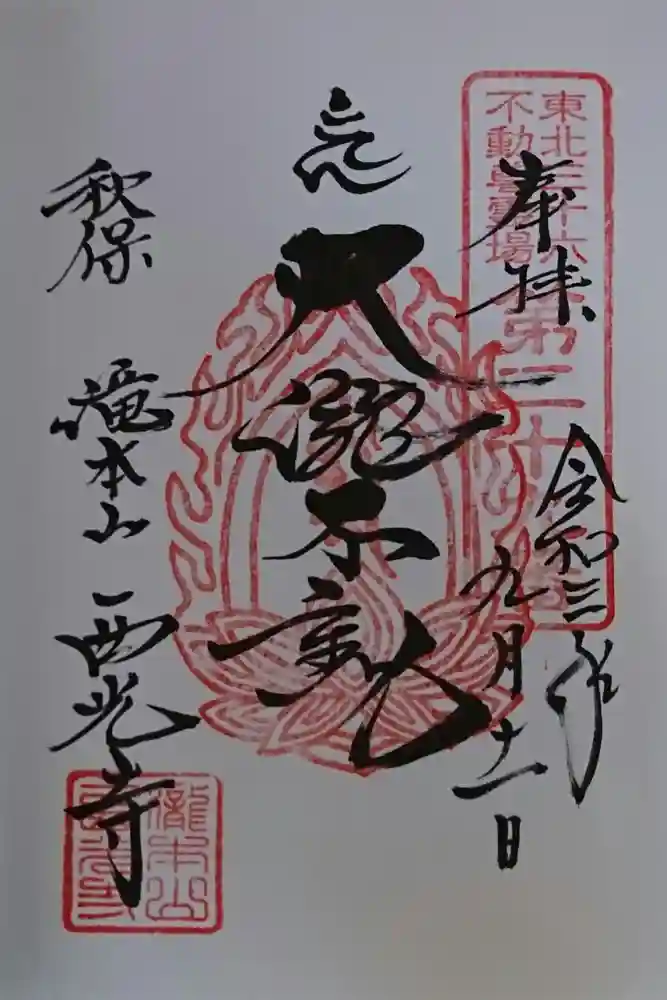 東北三十六
不動尊霊場
第二十
奉拝
令和三年
九月十一日
大瀧不動
秋保 滝本山 西光寺
瀧本山
西光寺